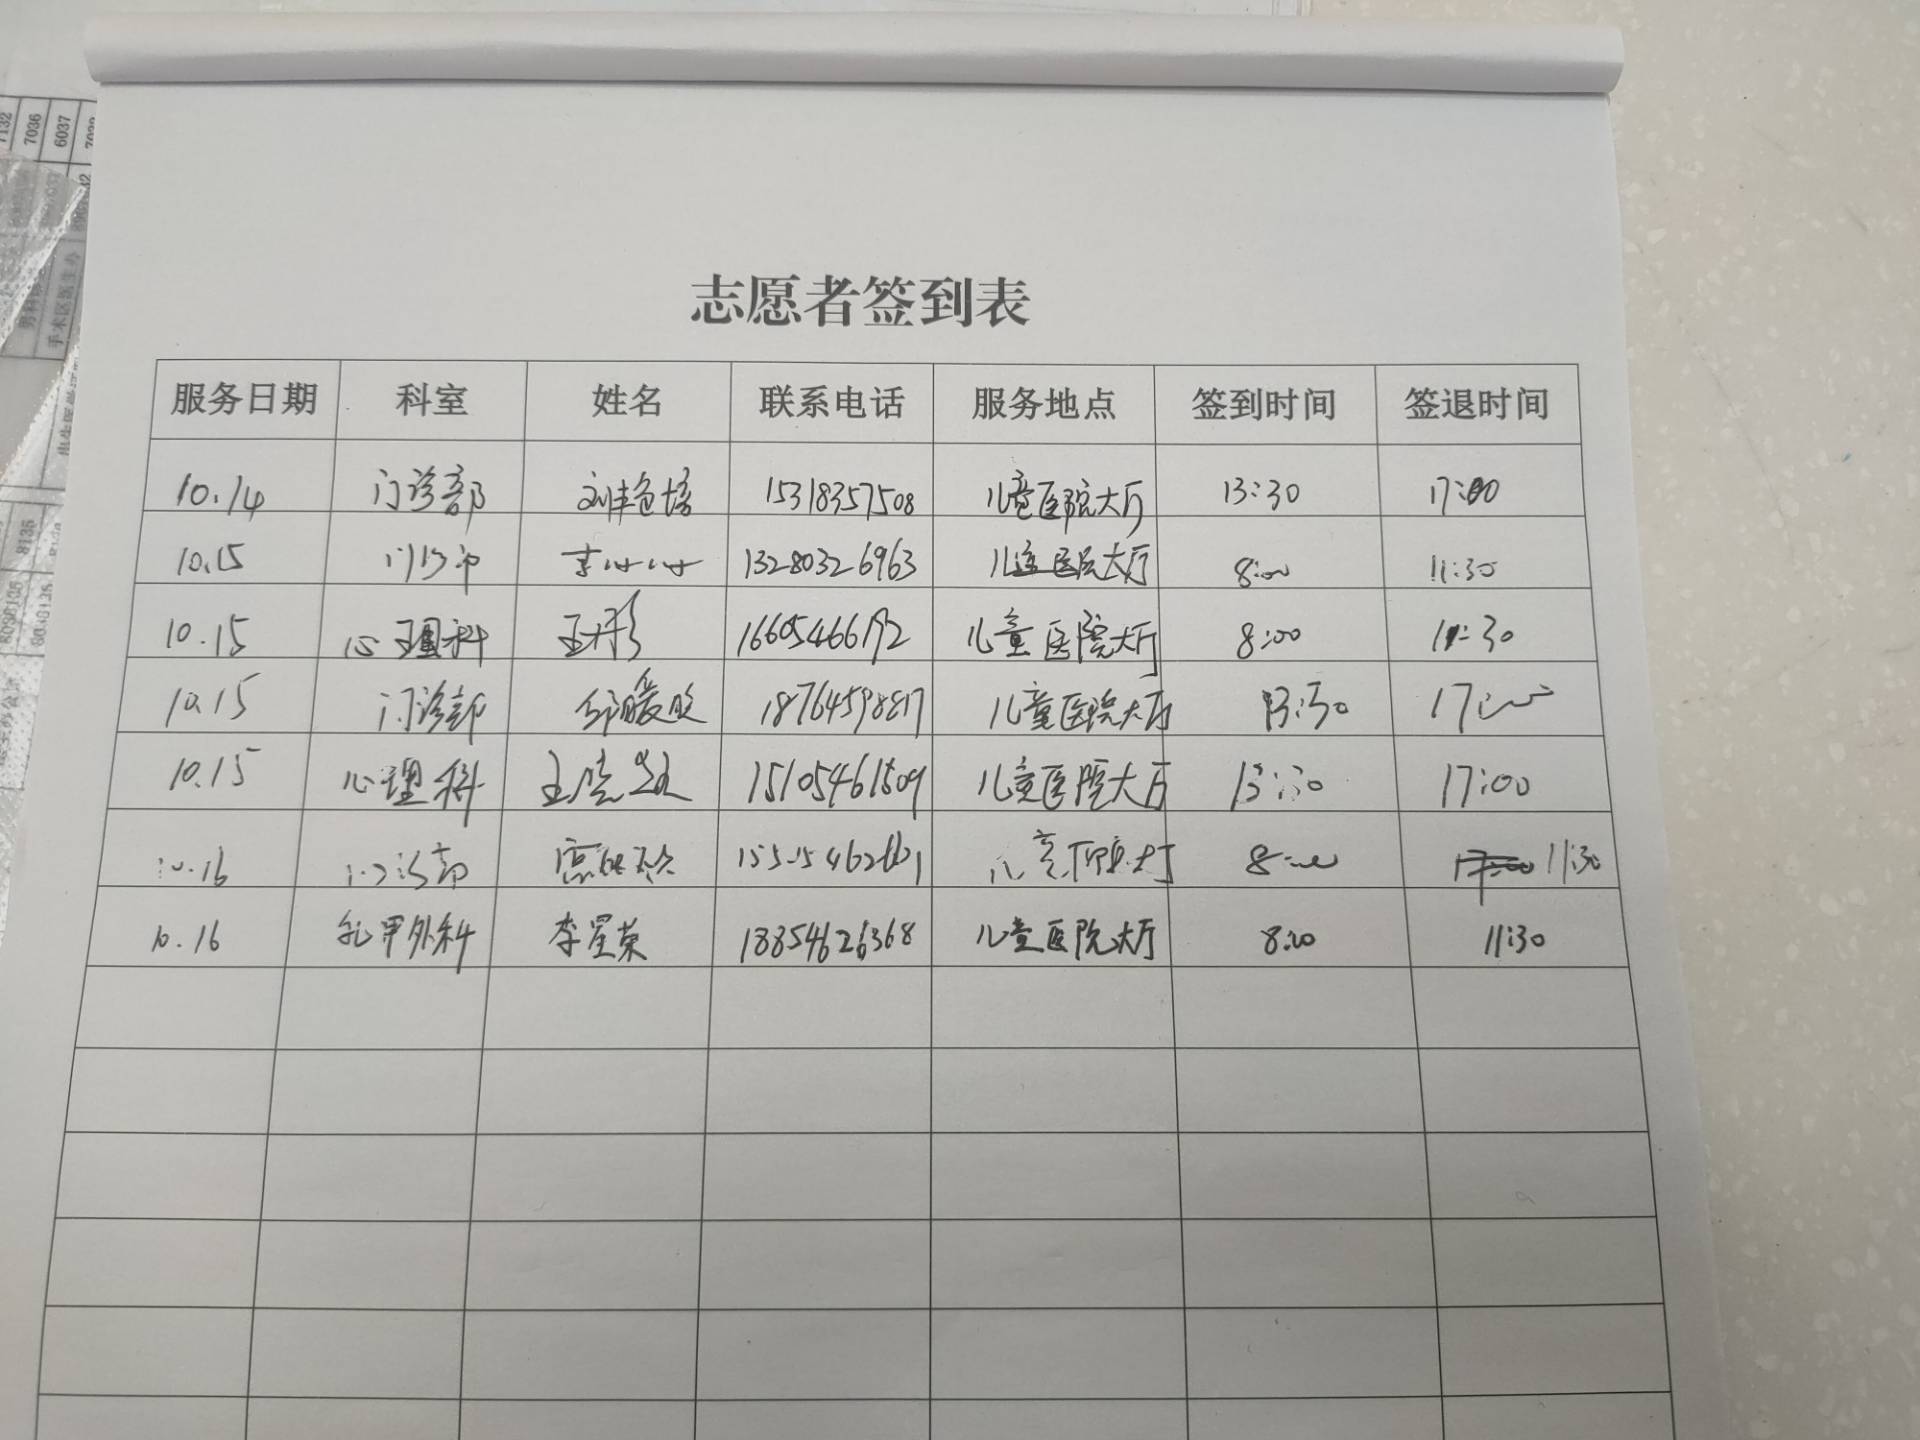 志愿者签到表
服务日期 科室 姓名 联系电话 服务地点 签到时间 签退时间
10.14 门诊部 15318357508 儿童医院大厅 13:30 17:00
10.15 门诊部 13280326963 儿童医院大厅 8:00 11:30
10.15 心理科 王彤 16605466192 儿童医院大厅 8:00 11:30
10.15 门诊部 18764598817 儿童医院大厅 13:30 17:00
10.15 心理科 15105461509 儿童医院大厅 13:30 17:00
10.16 门诊部 儿童医院大厅 8:00 11:30
10.16 乳甲外科 李星荣 18854626368 儿童医院大厅 8:00 11:30
7036
6037
8136
手术区医生办